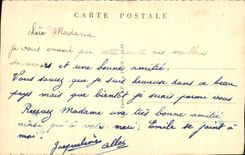 CARTE POSTALE
chère Madame
Je vous envoie par cette carte mes meilleurs
souvenirs et une bonne amitié.
Vous savez que je suis heureuse dans ce beau
pays mais que bientôt je suis parmi vous
Recevez Madame une très bonne amitié
ainsi qu'à votre mari. Emile se joint à
moi.
Jacqueline